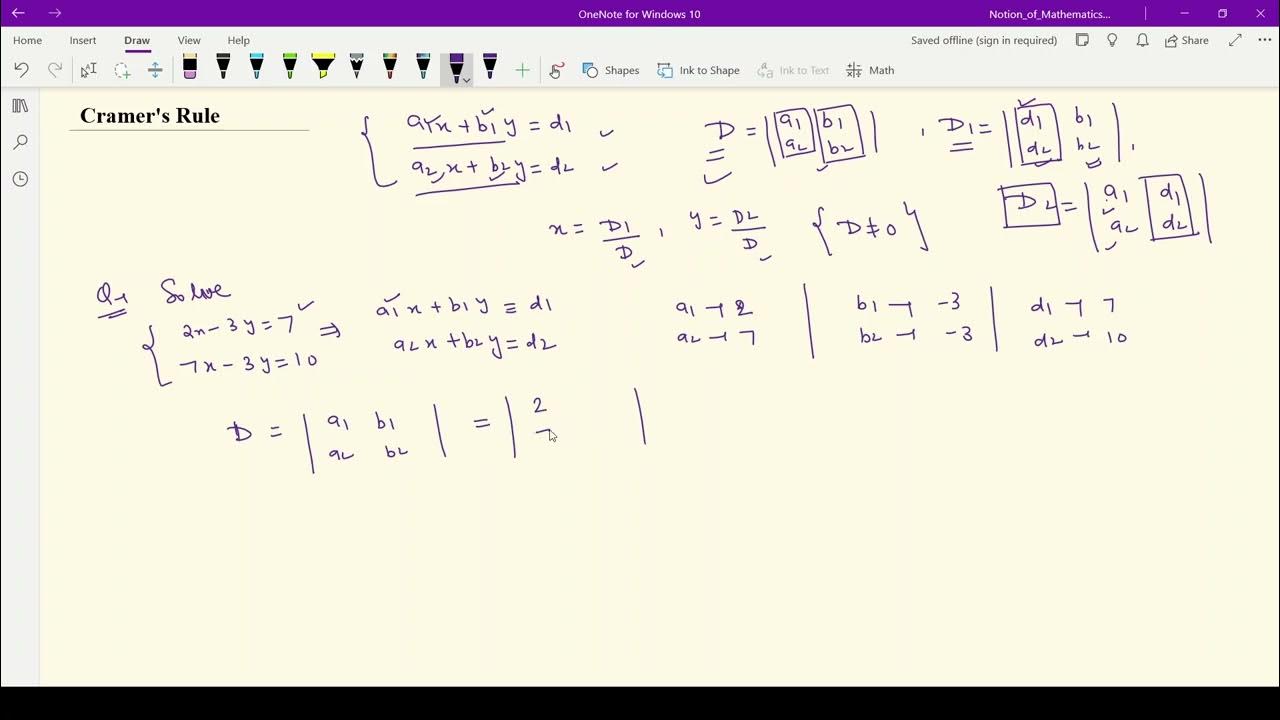 OneNote for Windows 10
Notion_of_Mathematics...
Home Insert Draw View Help
Saved offline (sign in required) Share
Shapes Ink to Shape Ink to Text Math
Cramer's Rule
a₁x + b₁y = d₁
a₂x + b₂y = d₂
D = | a₁ b₁ |
| a₂ b₂ |
, D₁ = | d₁ b₁ |
| d₂ b₂ | ,
D₂ = | a₁ d₁ |
| a₂ d₂ |
x = D₁/D , y = D₂/D { D ≠ 0 }
Q1 Solve
{ 2x - 3y = 7 ⇒ a₁x + b₁y = d₁
7x - 3y = 10 a₂x + b₂y = d₂
a₁ → 2 | b₁ → -3 | d₁ → 7
a₂ → 7 | b₂ → -3 | d₂ → 10
D = | a₁ b₁ | = | 2 |
| a₂ b₂ | | 7 |